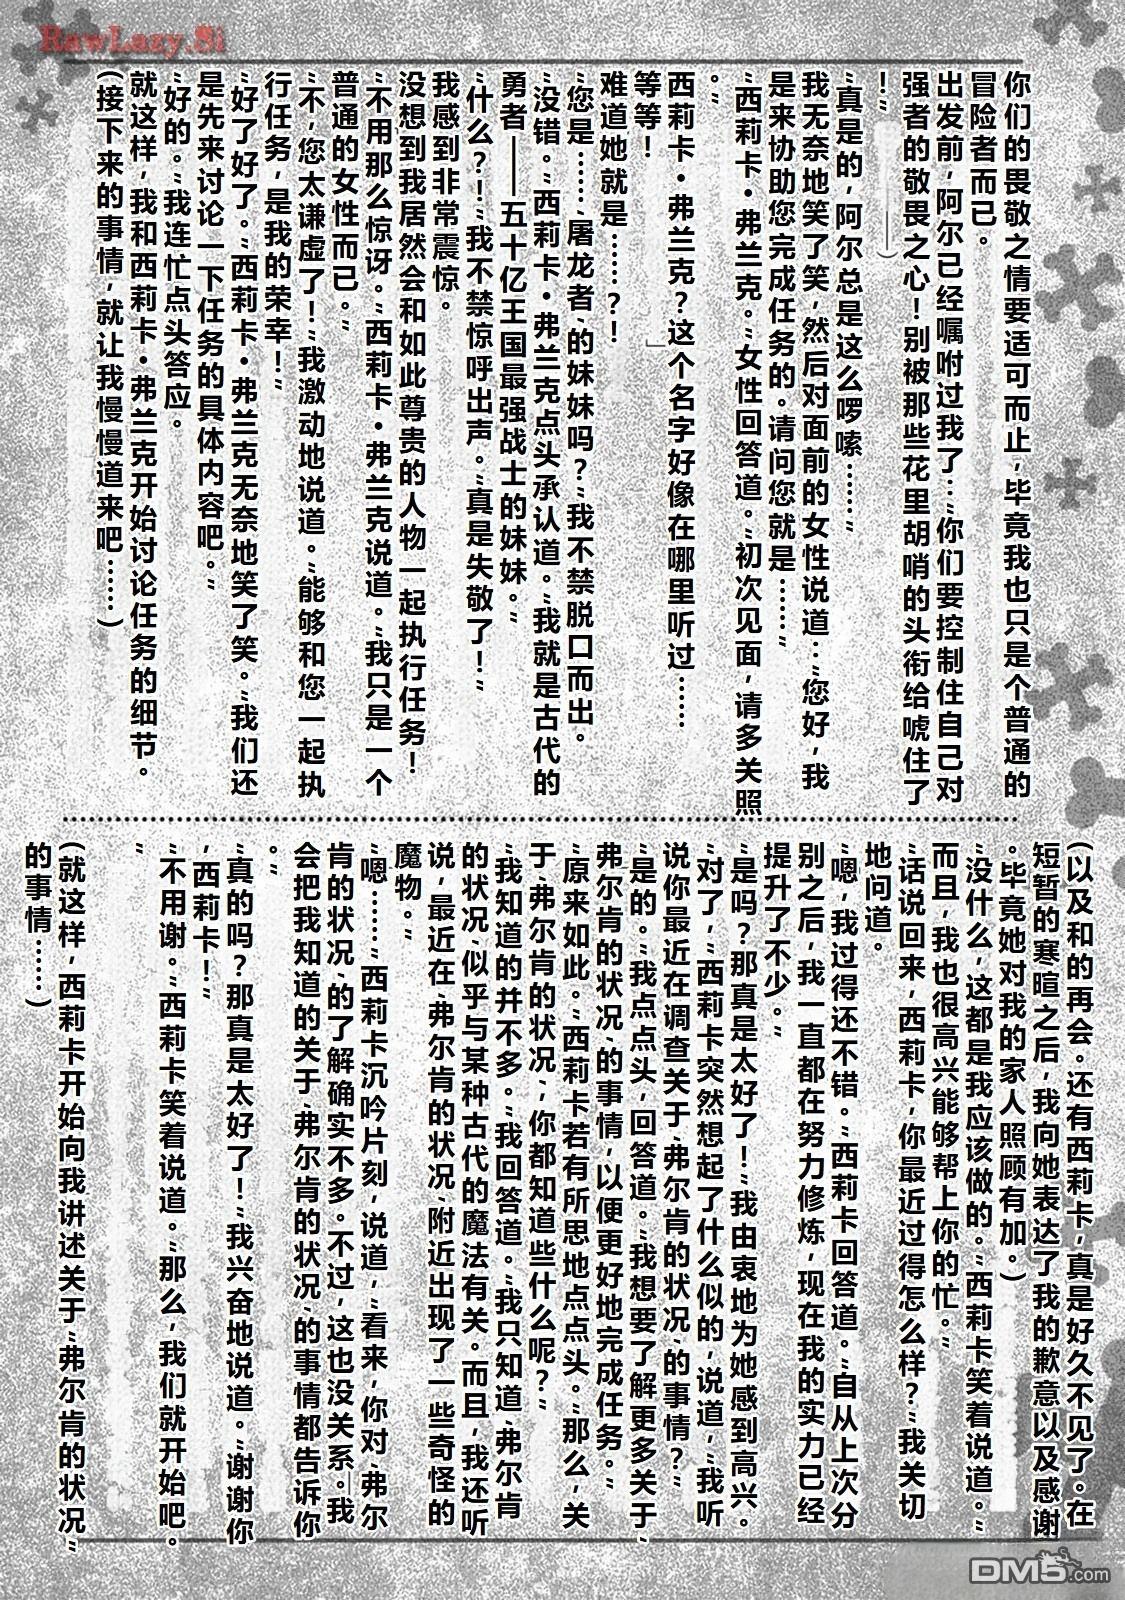 RawLazy.Si
你们的畏敬之情要适可而止，毕竟我也只是个普通的
冒险者而已。
出发前，阿尔已经嘱咐过我了：“你们要控制住自己对
强者的敬畏之心！别被那些花里胡哨的头衔给唬住了
！”
“真是的，阿尔总是这么啰嗦……”
我无奈地笑了笑，然后对面前的女性说道：“您好，我
是来协助您完成任务的。请问您就是……”
“西莉卡·弗兰克。”女性回答道。“初次见面，请多关照
。”
西莉卡·弗兰克？这个名字好像在哪里听过……
等等！
难道她就是……？！
“您是……‘屠龙者’的妹妹吗？”我不禁脱口而出。
“没错。”西莉卡·弗兰克点头承认道。“我就是古代的
勇者——五十亿王国最强战士的妹妹。”
“什么？！”我不禁惊呼出声。“真是失敬了！”
我感到非常震惊。
没想到我居然会和如此尊贵的人物一起执行任务！
“不用那么惊讶。”西莉卡·弗兰克说道。“我只是一个
普通的女性而已。”
“不，您太谦虚了！”我激动地说道。“能够和您一起执
行任务，是我的荣幸！”
“好了好了。”西莉卡·弗兰克无奈地笑了笑。“我们还
是先来讨论一下任务的具体内容吧。”
“好的。”我连忙点头答应。
就这样，我和西莉卡·弗兰克开始讨论任务的细节。
（接下来的事情，就让我慢慢道来吧……）
（以及和的再会。还有西莉卡，真是好久不见了。在
短暂的寒暄之后，我向她表达了我的歉意以及感谢
。毕竟她对我的家人照顾有加。）
“没什么，这都是我应该做的。”西莉卡笑着说道。“
而且，我也很高兴能够帮上你的忙。”
“话说回来，西莉卡，你最近过得怎么样？”我关切
地问道。
“嗯，我过得还不错。”西莉卡回答道。“自从上次分
别之后，我一直都在努力修炼，现在我的实力已经
提升了不少。”
“是吗？那真是太好了！”我由衷地为她感到高兴。
“对了，”西莉卡突然想起了什么似的，说道，“我听
说你最近在调查关于‘弗尔肯的状况’的事情？”
“是的。”我点点头，回答道。“我想要了解更多关于‘
弗尔肯的状况’的事情，以便更好地完成任务。”
“原来如此。”西莉卡若有所思地点点头。“那么，关
于‘弗尔肯的状况’，你都知道些什么呢？”
“我知道的并不多。”我回答道。“我只知道‘弗尔肯
的状况’似乎与某种古代的魔法有关。而且，我还听
说，最近在‘弗尔肯的状况’附近出现了一些奇怪的
魔物。”
“嗯……”西莉卡沉吟片刻，说道，“看来，你对‘弗尔
肯的状况’的了解确实不多。不过，这也没关系。我
会把我知道的关于‘弗尔肯的状况’的事情都告诉你
。”
“真的吗？那真是太好了！”我兴奋地说道。“谢谢你
，西莉卡！”
“不用谢。”西莉卡笑着说道。“那么，我们就开始吧。
”
（就这样，西莉卡开始向我讲述关于“弗尔肯的状况”
的事情……）
DM5.com